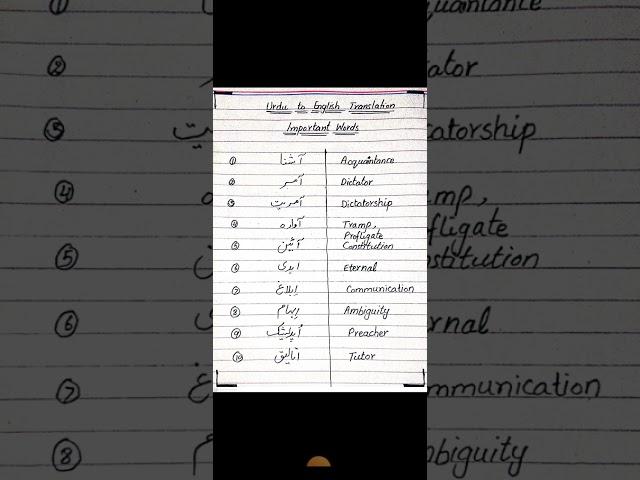 Urdu to English Translation
Important Words
① آشنا Acquaintance
② آمر Dictator
③ آمریت Dictatorship
④ آوارہ Tramp, Profligate
⑤ آئین Constitution
⑥ ابدی Eternal
⑦ اِبلاغ Communication
⑧ اِبہام Ambiguity
⑨ اُپدیشک Preacher
⑩ اتالیق Tutor